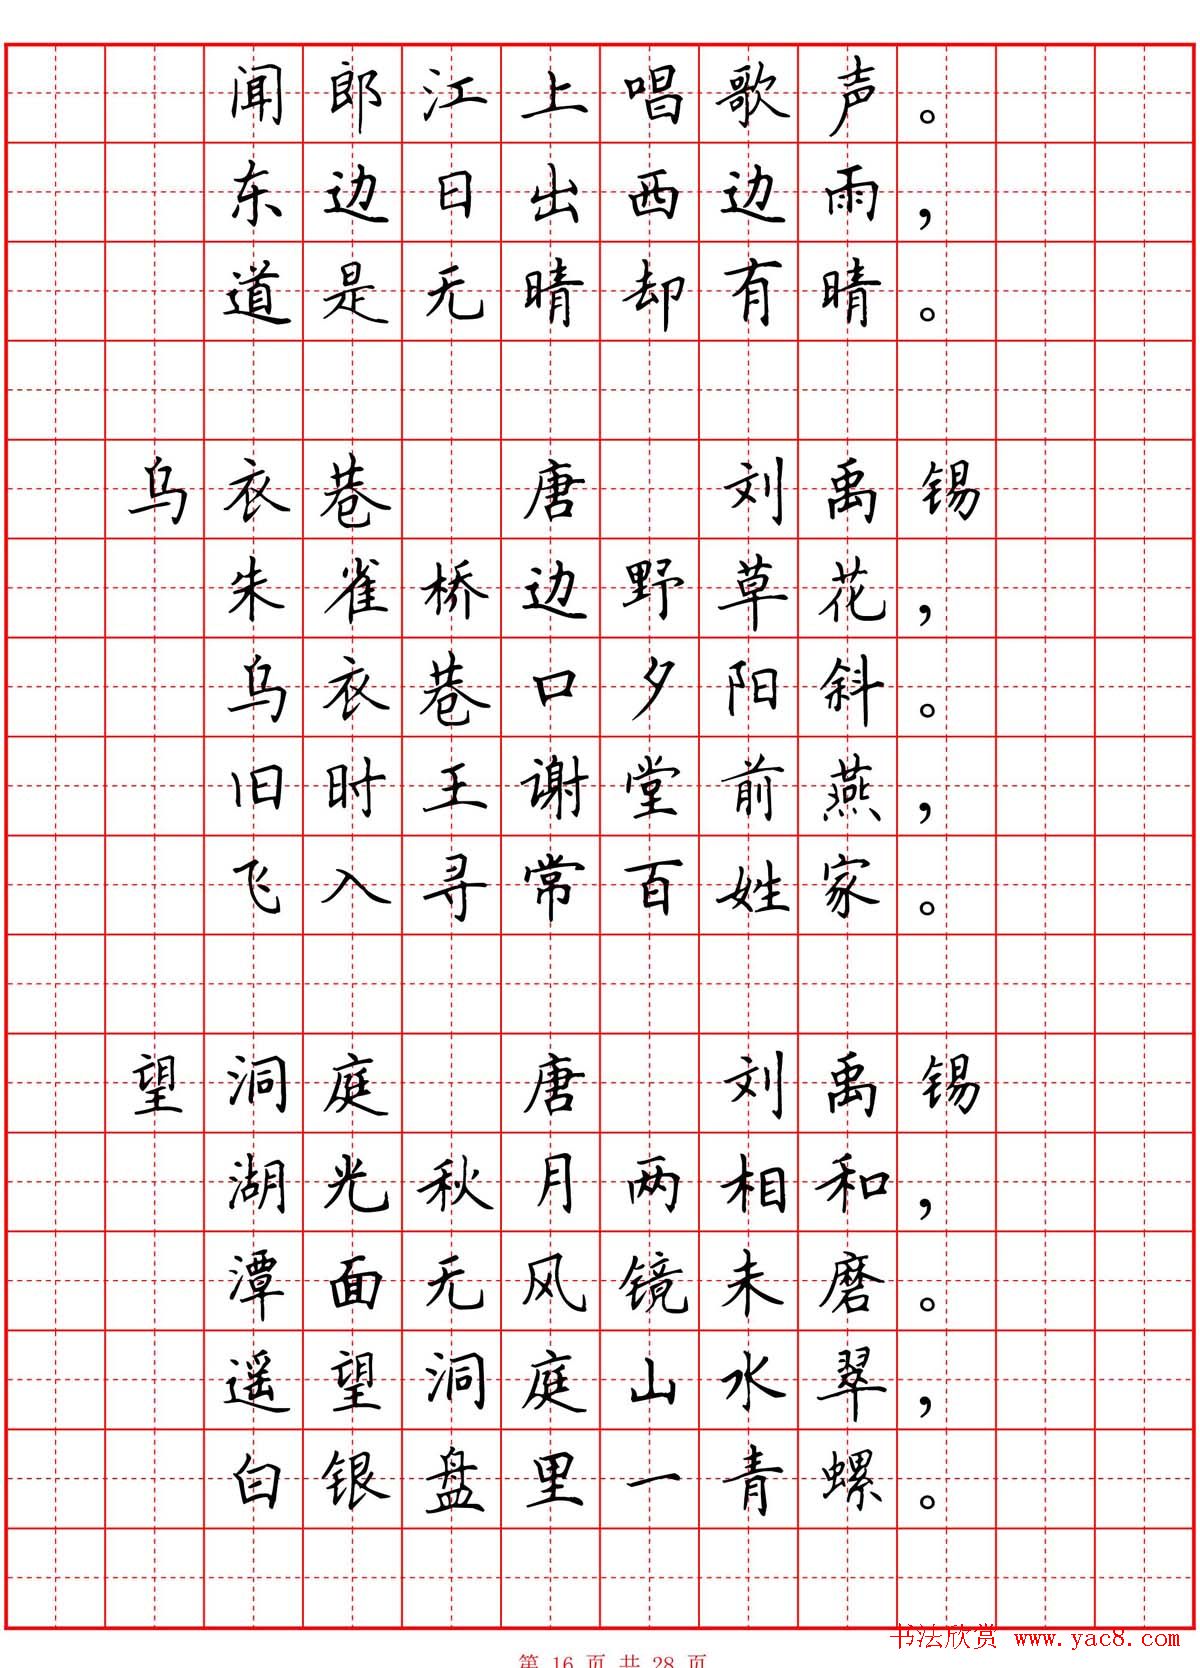 闻郎江上唱歌声。
东边日出西边雨，
道是无晴却有晴。
乌衣巷 唐 刘禹锡
朱雀桥边野草花，
乌衣巷口夕阳斜。
旧时王谢堂前燕，
飞入寻常百姓家。
望洞庭 唐 刘禹锡
湖光秋月两相和，
潭面无风镜未磨。
遥望洞庭山水翠，
白银盘里一青螺。
书法欣赏 www.yac8.com
第 16 页 共 28 页